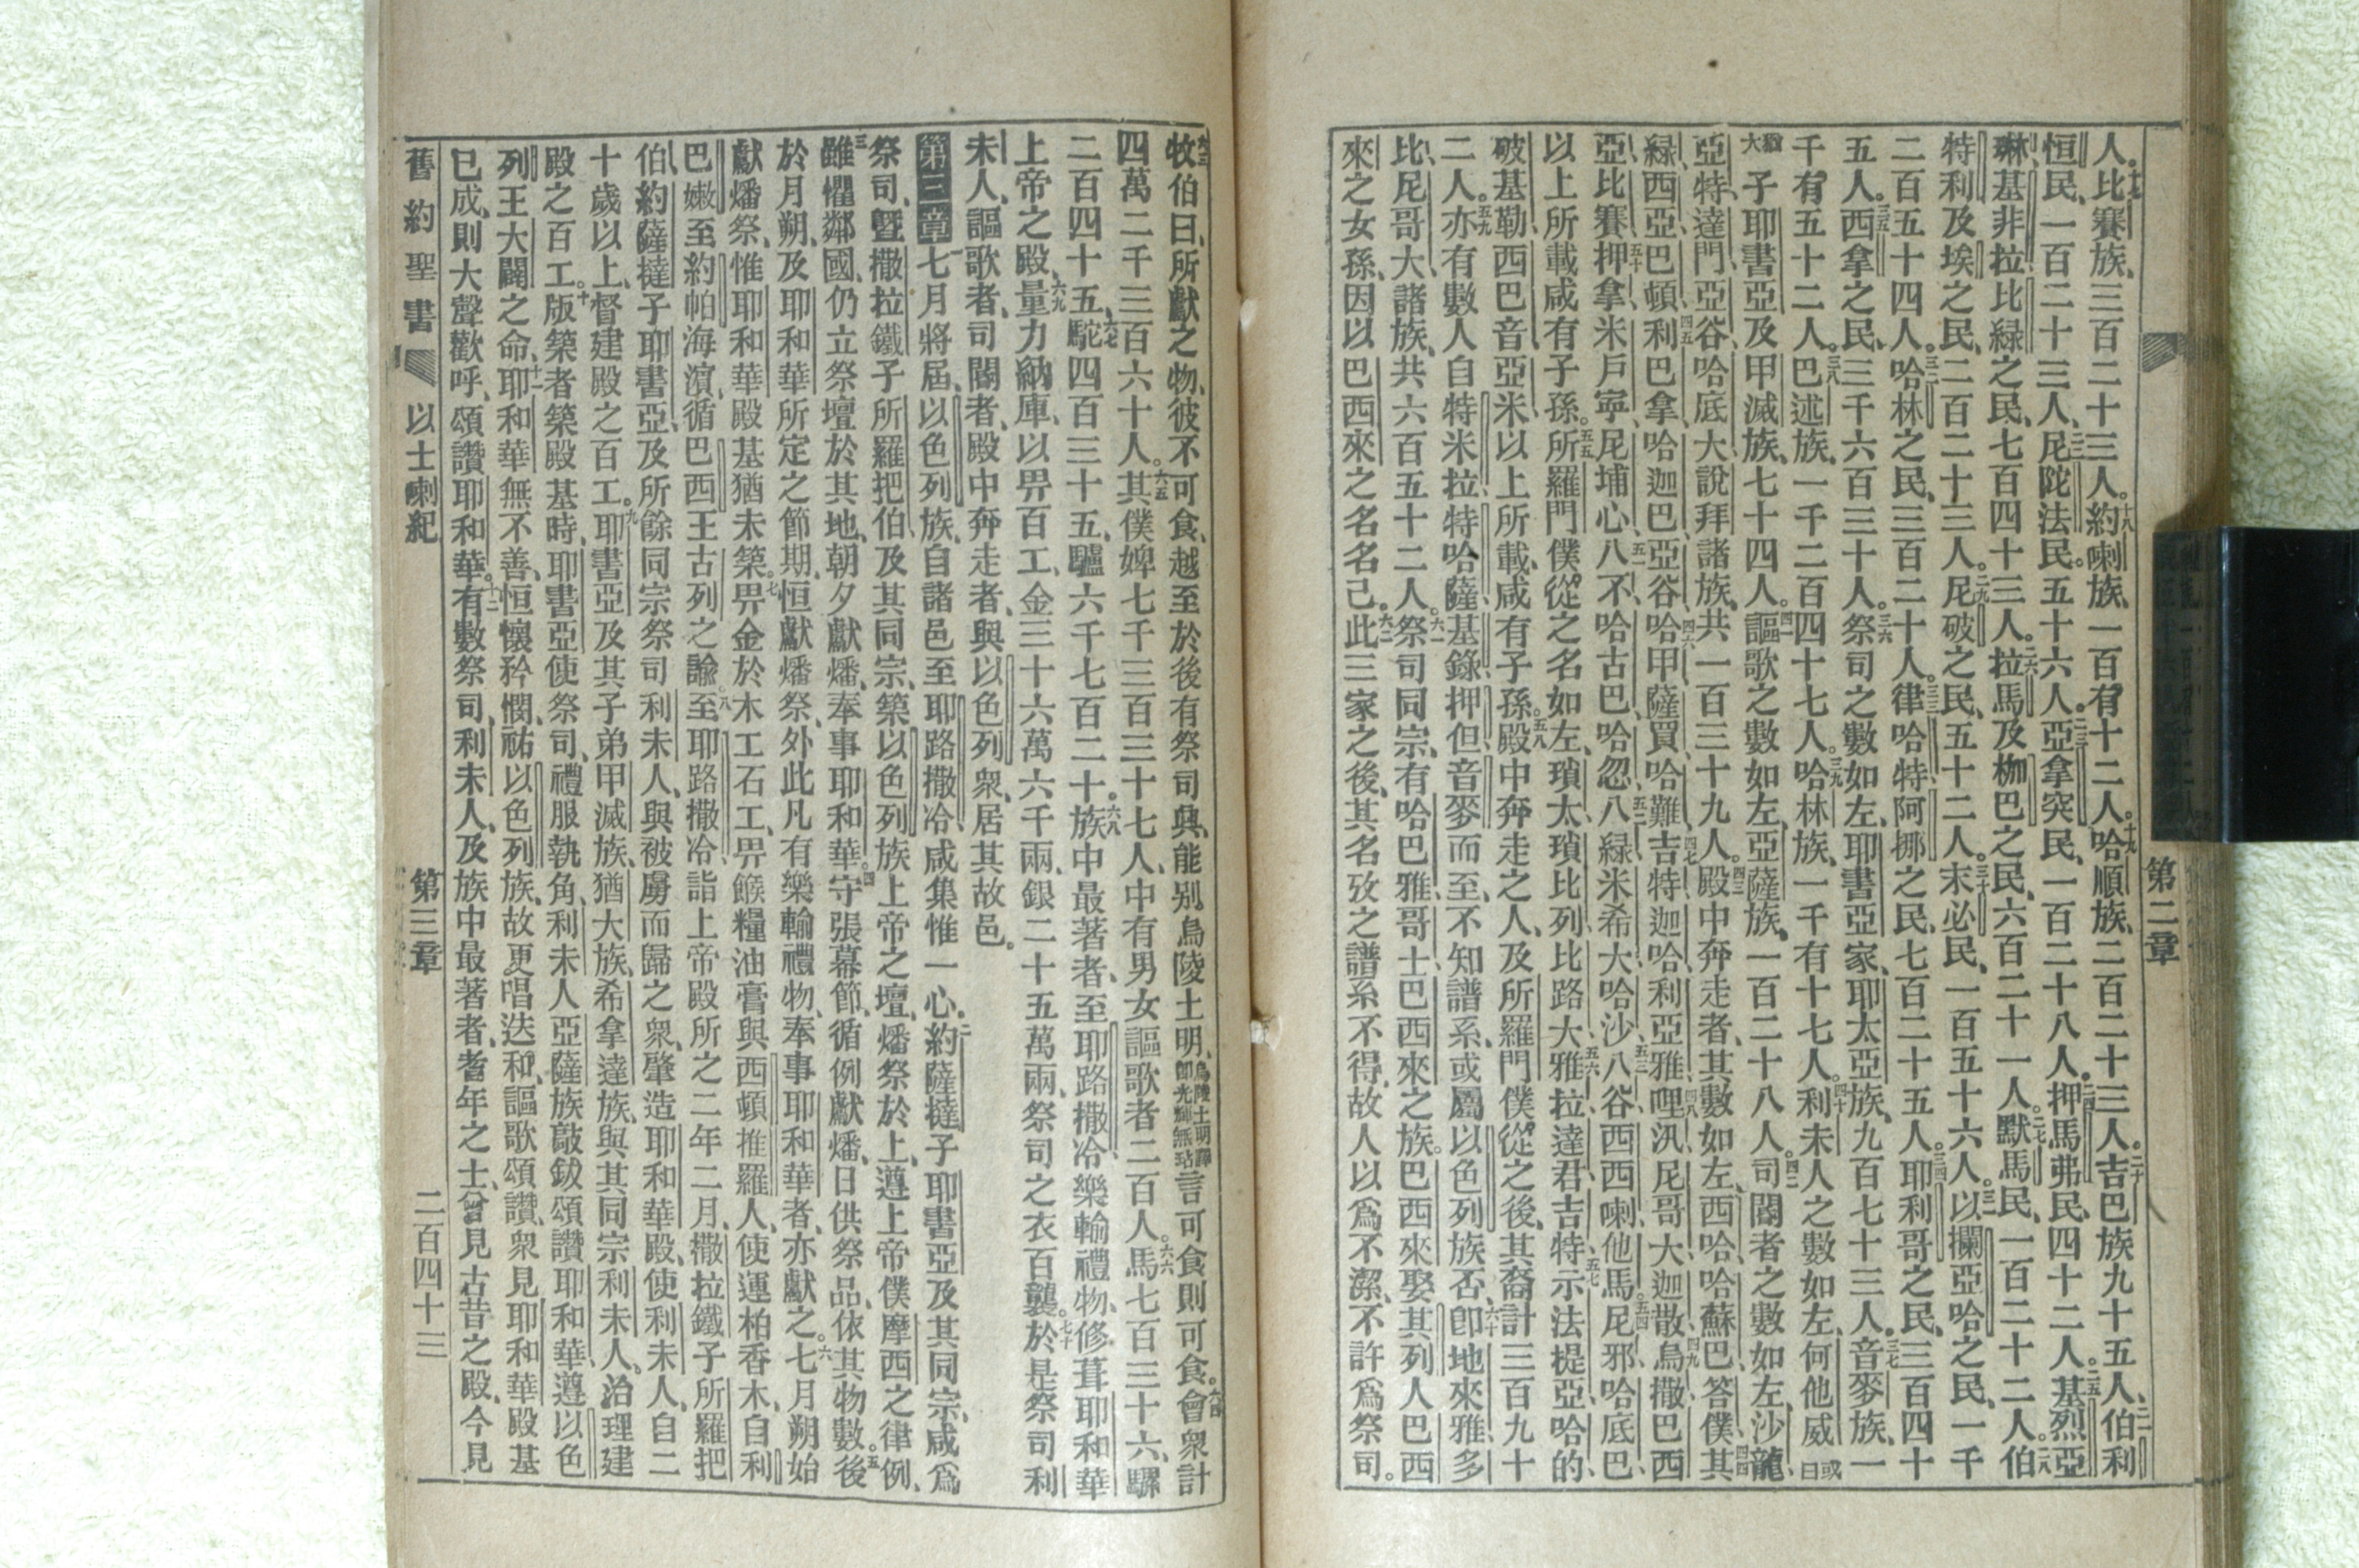 第二章
人比賽族三百二十三人約喇族一百有十二人哈順族二百二十三人吉巴族九十五人伯利
恒民一百二十三人尼陀法民五十六人亞拿突民一百二十八人押馬弗民四十二人基烈亞
琳基非拉比綠之民七百四十三人拉馬及枷巴之民六百二十一人默馬民一百二十二人伯
特利及埃之民二百二十三人尼破之民五十二人末必民一百五十六人以攔亞哈之民一千
二百五十四人哈林之民三百二十人律哈特阿挪之民七百二十五人耶利哥之民三百四十
五人西拿之民三千六百三十人祭司之數如左耶書亞家耶太亞族九百七十三人音麥族一
千有五十二人巴述族一千二百四十七人哈林族一千有十七人利未人之數如左何他威或曰
猶大子耶書亞及甲滅族七十四人謳歌之數如左亞薩族一百二十八人司閽者之數如左沙龍
亞特達門亞谷哈底大說拜諸族共一百三十九人殿中奔走者其數如左西哈哈蘇巴答僕其
綠西亞巴頓利巴拿哈迦巴亞谷哈甲薩買哈難吉特迦哈利亞雅哩汎尼哥大迦散烏撒巴西
亞比賽押拿米戶寧尼埔心八不哈古巴哈忽八綠米希大哈沙八谷西西喇他馬尼邪哈底巴
以上所載咸有子孫所羅門僕從之名如左瑣太瑣比列比路大雅拉達君吉特示法提亞哈的
破基勒西巴音亞米以上所載咸有子孫殿中奔走之人及所羅門僕從之後其裔計三百九十
二人亦有數人自特米拉特哈薩基錄押但音麥而至不知譜系或屬以色列族否卽地來雅多
比尼哥大諸族共六百五十二人祭司同宗有哈巴雅哥士巴西來之族巴西來娶其列人巴西
來之女孫因以巴西來之名名己此三家之後其名攷之譜系不得故人以爲不潔不許爲祭司
牧伯曰所獻之物彼不可食越至於後有祭司興能别烏陵土明烏陵土明譯卽光輝無玷言可食則可食會衆計
四萬二千三百六十人其僕婢七千三百三十七人中有男女謳歌者二百人馬七百三十六騾
二百四十五駝四百三十五驢六千七百二十族中最著者至耶路撒冷樂輸禮物修葺耶和華
上帝之殿量力納庫以畀百工金三十六萬六千兩銀二十五萬兩祭司之衣百襲於是祭司利
未人謳歌者司閽者殿中奔走者與以色列衆居其故邑
第三章七月將屆以色列族自諸邑至耶路撒冷咸集惟一心約薩撻子耶書亞及其同宗咸爲
祭司曁撒拉鐵子所羅把伯及其同宗築以色列族上帝之壇燔祭於上遵上帝僕摩西之律例
雖懼鄰國仍立祭壇於其地朝夕獻燔奉事耶和華守張幕節循例獻燔日供祭品依其物數後
於月朔及耶和華所定之節期恒獻燔祭外此凡有樂輸禮物奉事耶和華者亦獻之七月朔始
獻燔祭惟耶和華殿基猶未築畀金於木工石工畀餱糧油膏與西頓推羅人使運柏香木自利
巴嫩至約帕海濵循巴西王古列之諭至耶路撒冷詣上帝殿所之二年二月撒拉鐵子所羅把
伯約薩撻子耶書亞及所餘同宗祭司利未人與被虜而歸之衆肇造耶和華殿使利未人自二
十歲以上督建殿之百工耶書亞及其子弟甲滅族猶大族希拿達族與其同宗利未人治理建
殿之百工版築者築殿基時耶書亞使祭司禮服執角利未人亞薩族敲鈸頌讚耶和華遵以色
列王大闢之命耶和華無不善恒懷矜憫祐以色列族故更唱迭和謳歌頌讚衆見耶和華殿基
已成則大聲歡呼頌讚耶和華有數祭司利未人及族中最著者耆年之士曾見古昔之殿今見
舊約聖書 以士喇紀 第三章 二百四十三